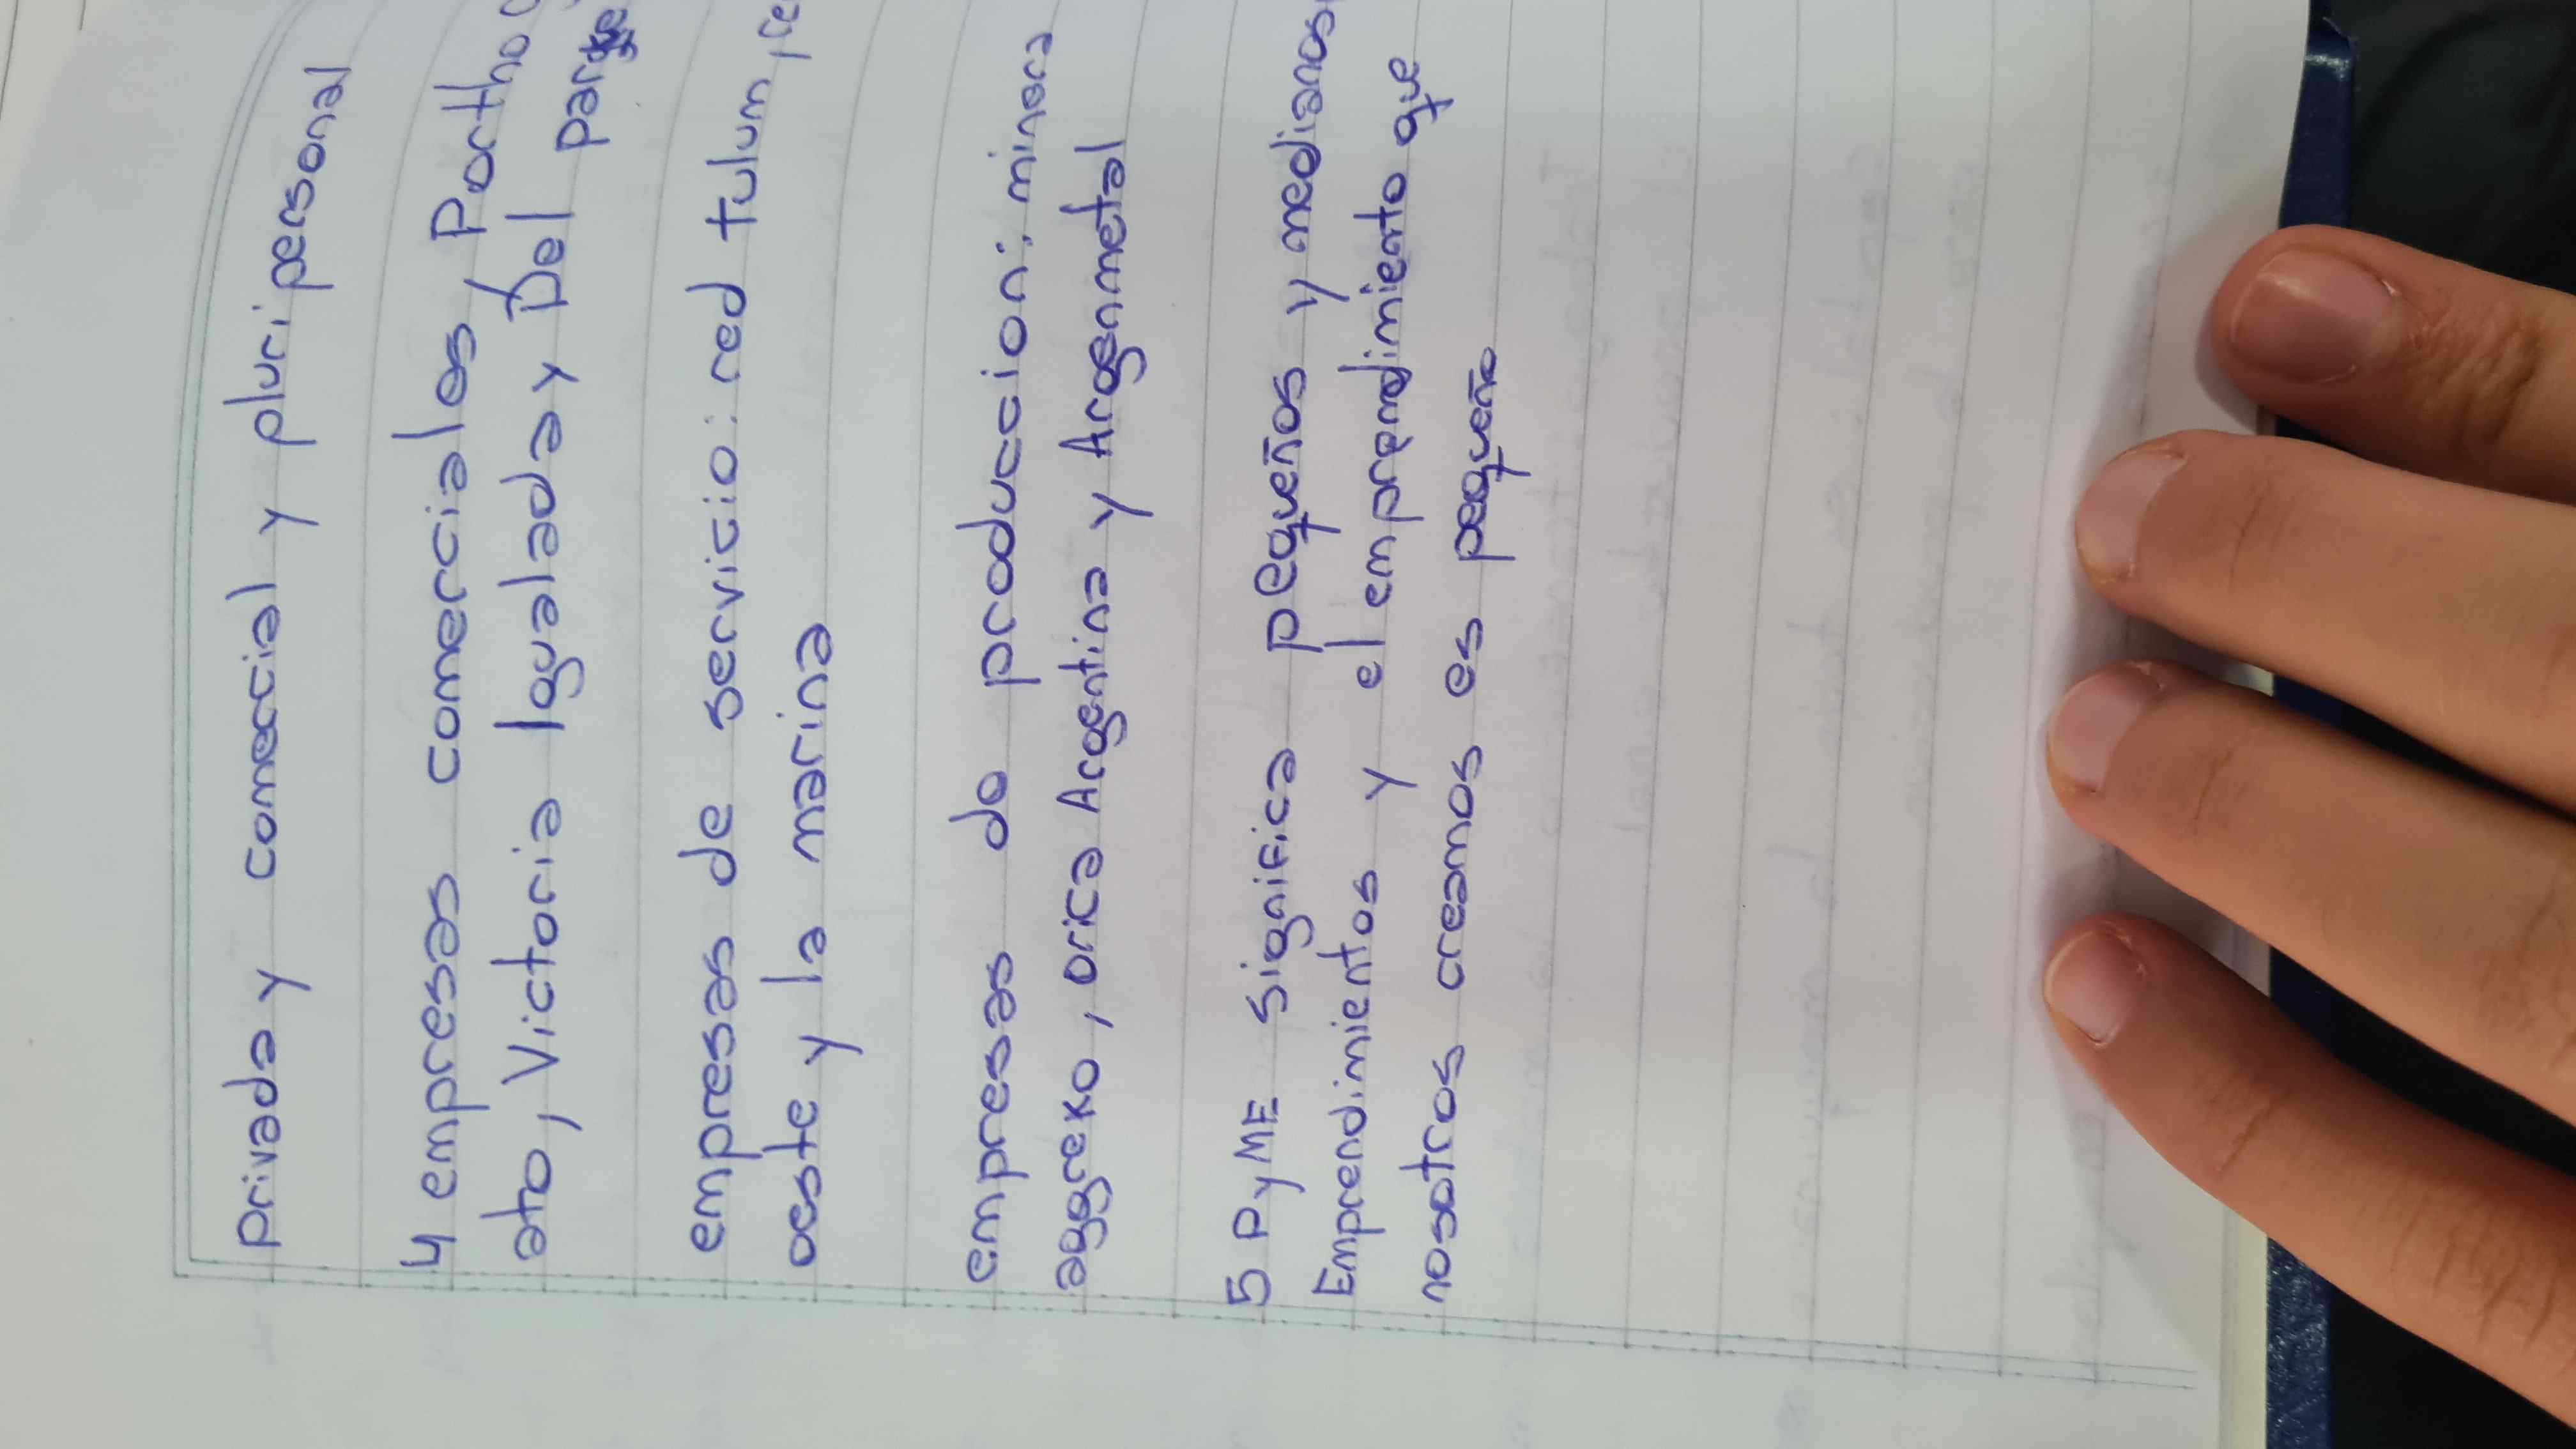 privada y comercial y pluripersonal
4 empresas comerciales, Portho
ato, Victoria Igualada y Del parque
empresas de servicio: red tulum,
oeste y la marina
empresas de produccion: minera
aggreko, orica Argentina y Argenmetal
5 PyME significa pequeños y medianos
Emprendimientos y el emprendimiento que
nosotros creamos es pequeño